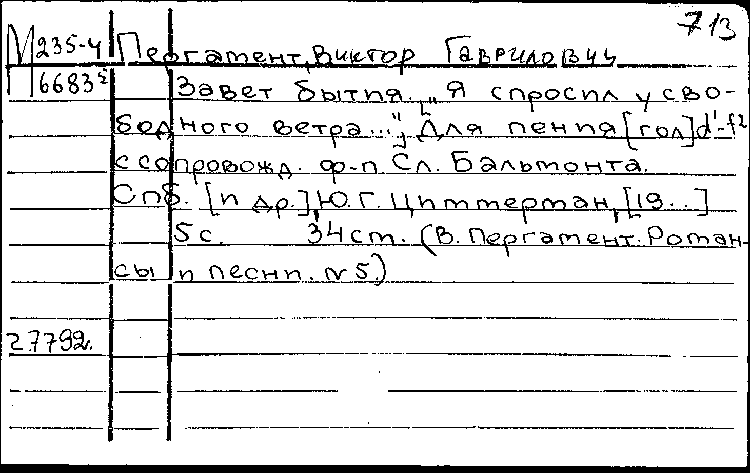 713
М235-4 Пергамент, Виктор Гаврилович
П6683² Завет бытия. ["Я спросил у сво-
бодного ветра..."]. Для пения [гол] d'-f²
с сопровожд. ф-п. Сл. Бальмонта.
Спб. [и др.], Ю.Г. Циммерман, [19..]
5с. 34см. (В. Пергамент. Роман-
сы и песни. №5.)
27792.